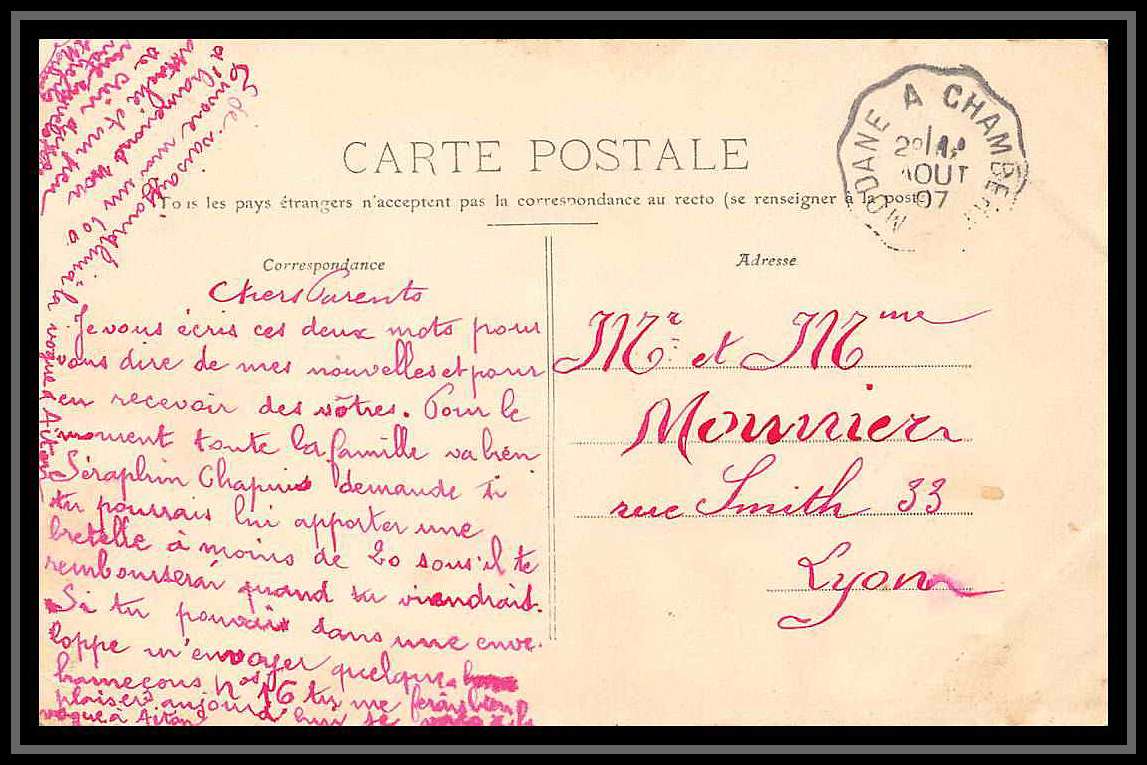 CARTE POSTALE
Tous les pays étrangers n'acceptent pas la correspondance au recto (se renseigner à la poste)
MODANE A CHAMBERY
2º
AOUT
07
Correspondance
Adresse
Chers Parents
Je vous écris ces deux mots pour
vous dire de mes nouvelles et pour
en recevoir des vôtres. Pour le
moment toute la famille va bien
Séraphin Chapuis demande si
tu pourrais lui apporter une
bretelle à moins de 20 sous il te
remboursera quand tu viendrais.
Si tu pouvais dans une enve-
loppe m'envoyer quelques
hameçons nos 16 tu me ferais bien
plaiser aujourd'hui
vogue à Aiton
à la vogue à Aiton
Mr et Mme
Mounier
rue Smith 33
Lyon